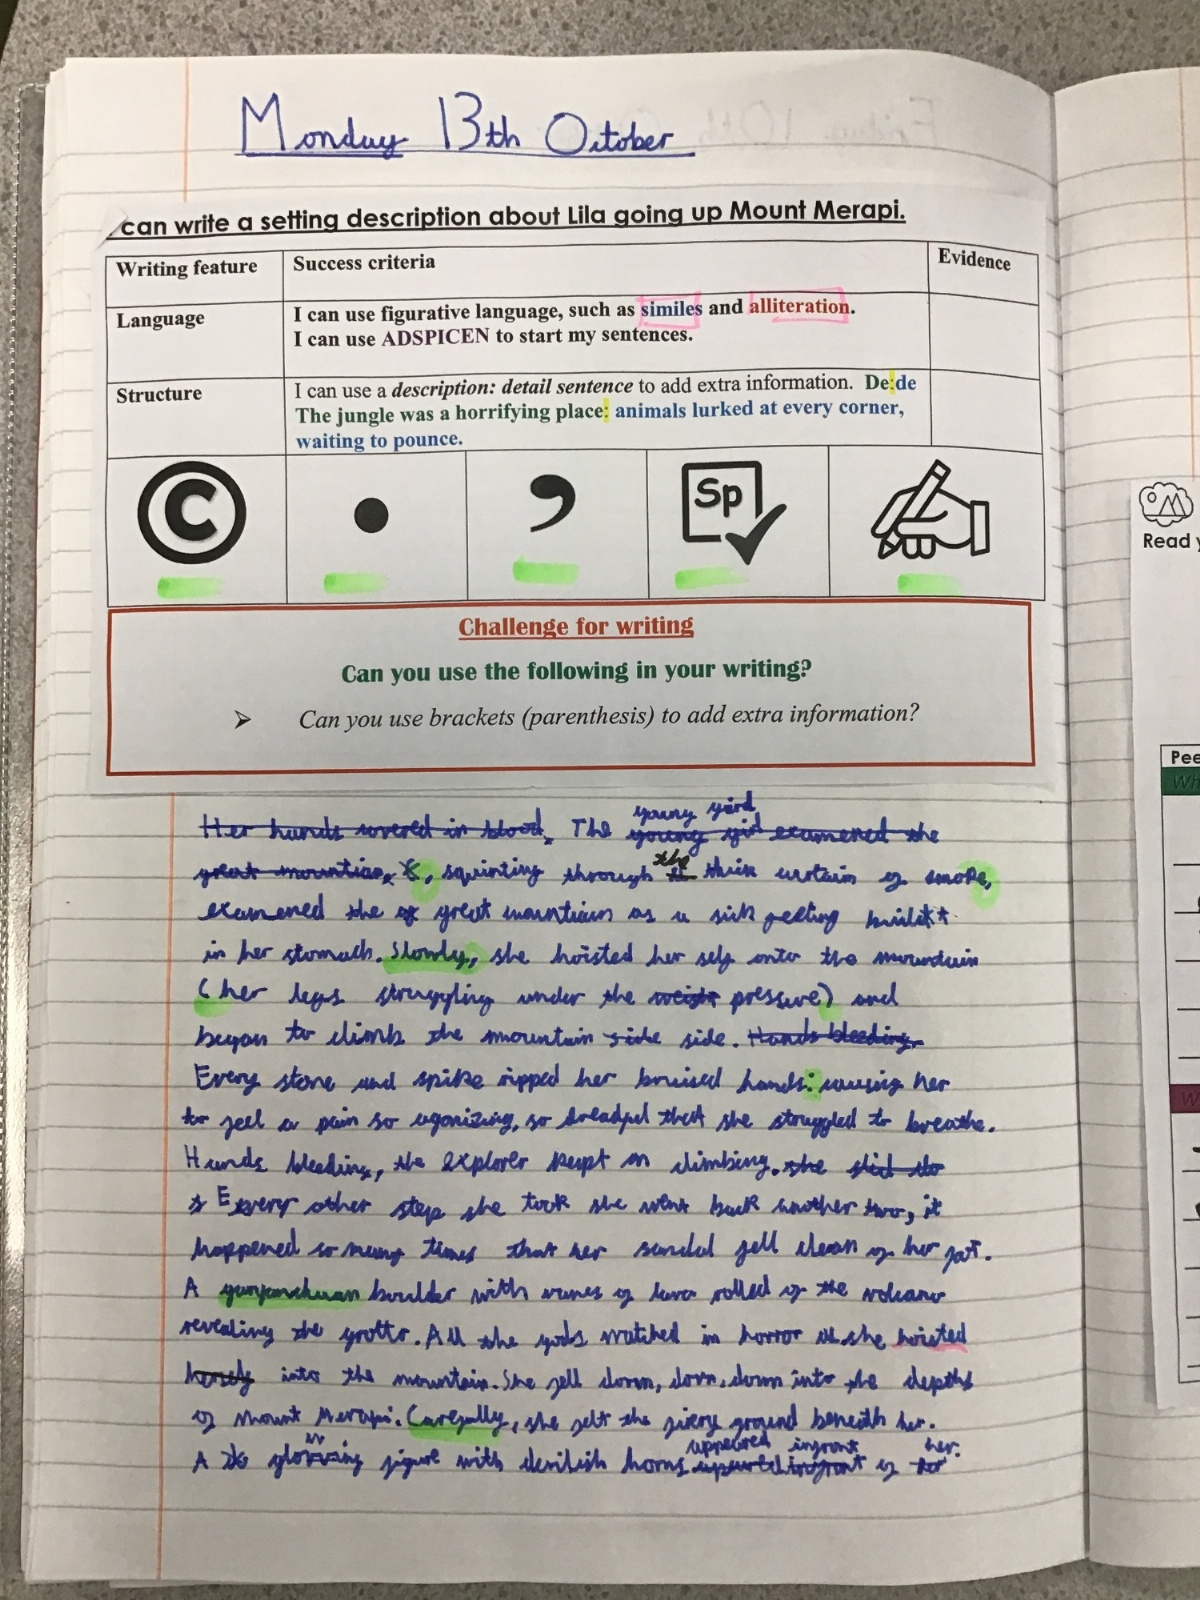 Monday 13th October
can write a setting description about Lila going up Mount Merapi.
Writing feature
Success criteria
Evidence
Language
I can use figurative language, such as similes and alliteration.
I can use ADSPICEN to start my sentences.
Structure
I can use a description: detail sentence to add extra information. De:de
The jungle was a horrifying place: animals lurked at every corner,
waiting to pounce.
C
Sp
Challenge for writing
Can you use the following in your writing?
Can you use brackets (parenthesis) to add extra information?
young gird
Her hands covered in blood, The young gid examened the
the
great mountian, squinting through thick curtain of smoke,
examened the great mountiain as a sick feeling
in her stomach. Slowly, she hoisted her self onto the mountain
(her legs struggling under the pressure) and
began to climb the mountain side side. Hands bleeding,
Every stone and spike ripped her bruised hands: causing her
to feel a pain so agonizing, so dreadful that she struggled to breathe.
Hands bleeding, the explorer kept on climbing. she slid
Every other step she took she went back another two, it
happened so many times that her sandal fell clean of her
A boulder with vanes of lava rolled of the volcano
revealing the grotto. All the gods watched in horror she hoisted
into the mountain. She fell down, down, down into the depths
of Mount Merapi. Carefully, she felt the firery ground beneath her.
appeared infront her.
A glowing figure with devilish horns of her
Read
Pee